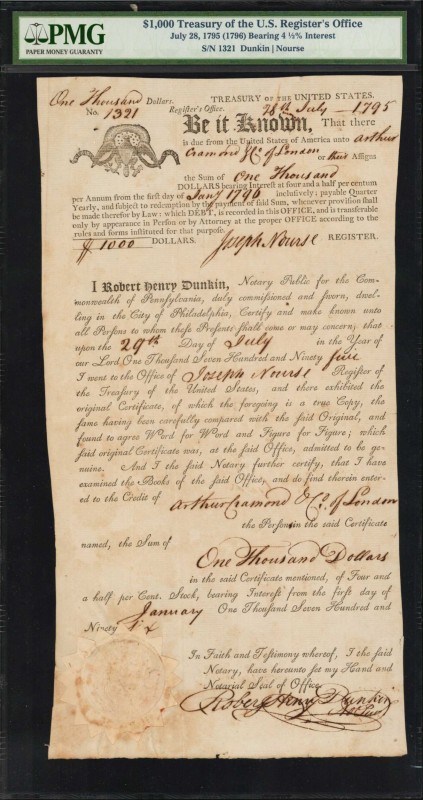 PMG
PAPER MONEY GUARANTY
$1,000 Treasury of the U.S. Register's Office
July 28, 1795 (1796) Bearing 4 ½% Interest
S/N 1321 Dunkin | Nourse
One Thousand Dollars.
No. 1321
TREASURY OF THE UNITED STATES.
Register's Office. 28th July 1795
Be it Known, That there
is due from the United States of America unto Arthur
Cramond & Co. of London or their Assigns
the Sum of One Thousand
DOLLARS bearing Interest at four and a half per centum
per Annum from the first day of Jany 1796 inclusively; payable Quarter
Yearly, and subject to redemption by the payment of said Sum, whenever provision shall
be made therefor by Law: which DEBT, is recorded in this OFFICE, and is transferable
only by appearance in Person or by Attorney at the proper OFFICE according to the
rules and forms instituted for that purpose.
$ 1000 DOLLARS. Joseph Nourse REGISTER.
I Robert Henry Dunkin, Notary Public for the Com-
monwealth of Pennsylvania, duly commissioned and sworn, dwel-
ling in the City of Philadelphia, Certify and make known unto
all Persons to whom these Presents shall come or may concern; that
upon the 29th Day of July in the Year of
our Lord One Thousand Seven Hundred and Ninety five
I went to the Office of Joseph Nourse Register of
the Treasury of the United States, and there exhibited the
original Certificate, of which the foregoing is a true Copy, the
same having been carefully compared with the said Original, and
found to agree Word for Word and Figure for Figure; which
said original Certificate was, at the said Office, admitted to be ge-
nuine. And I the said Notary further certify, that I have
examined the Books of the said Office, and do find therein enter-
ed to the Credit of Arthur Cramond & Co. of London
the Persons in the said Certificate
named, the Sum of
One Thousand Dollars
in the said Certificate mentioned, of Four and
a half per Cent. Stock, bearing Interest from the first day of
January One Thousand Seven Hundred and
Ninety Six
In Faith and Testimony whereof, I the said
Notary, have hereunto set my Hand and
Notarial Seal of Office.
Robert Henry Dunkin